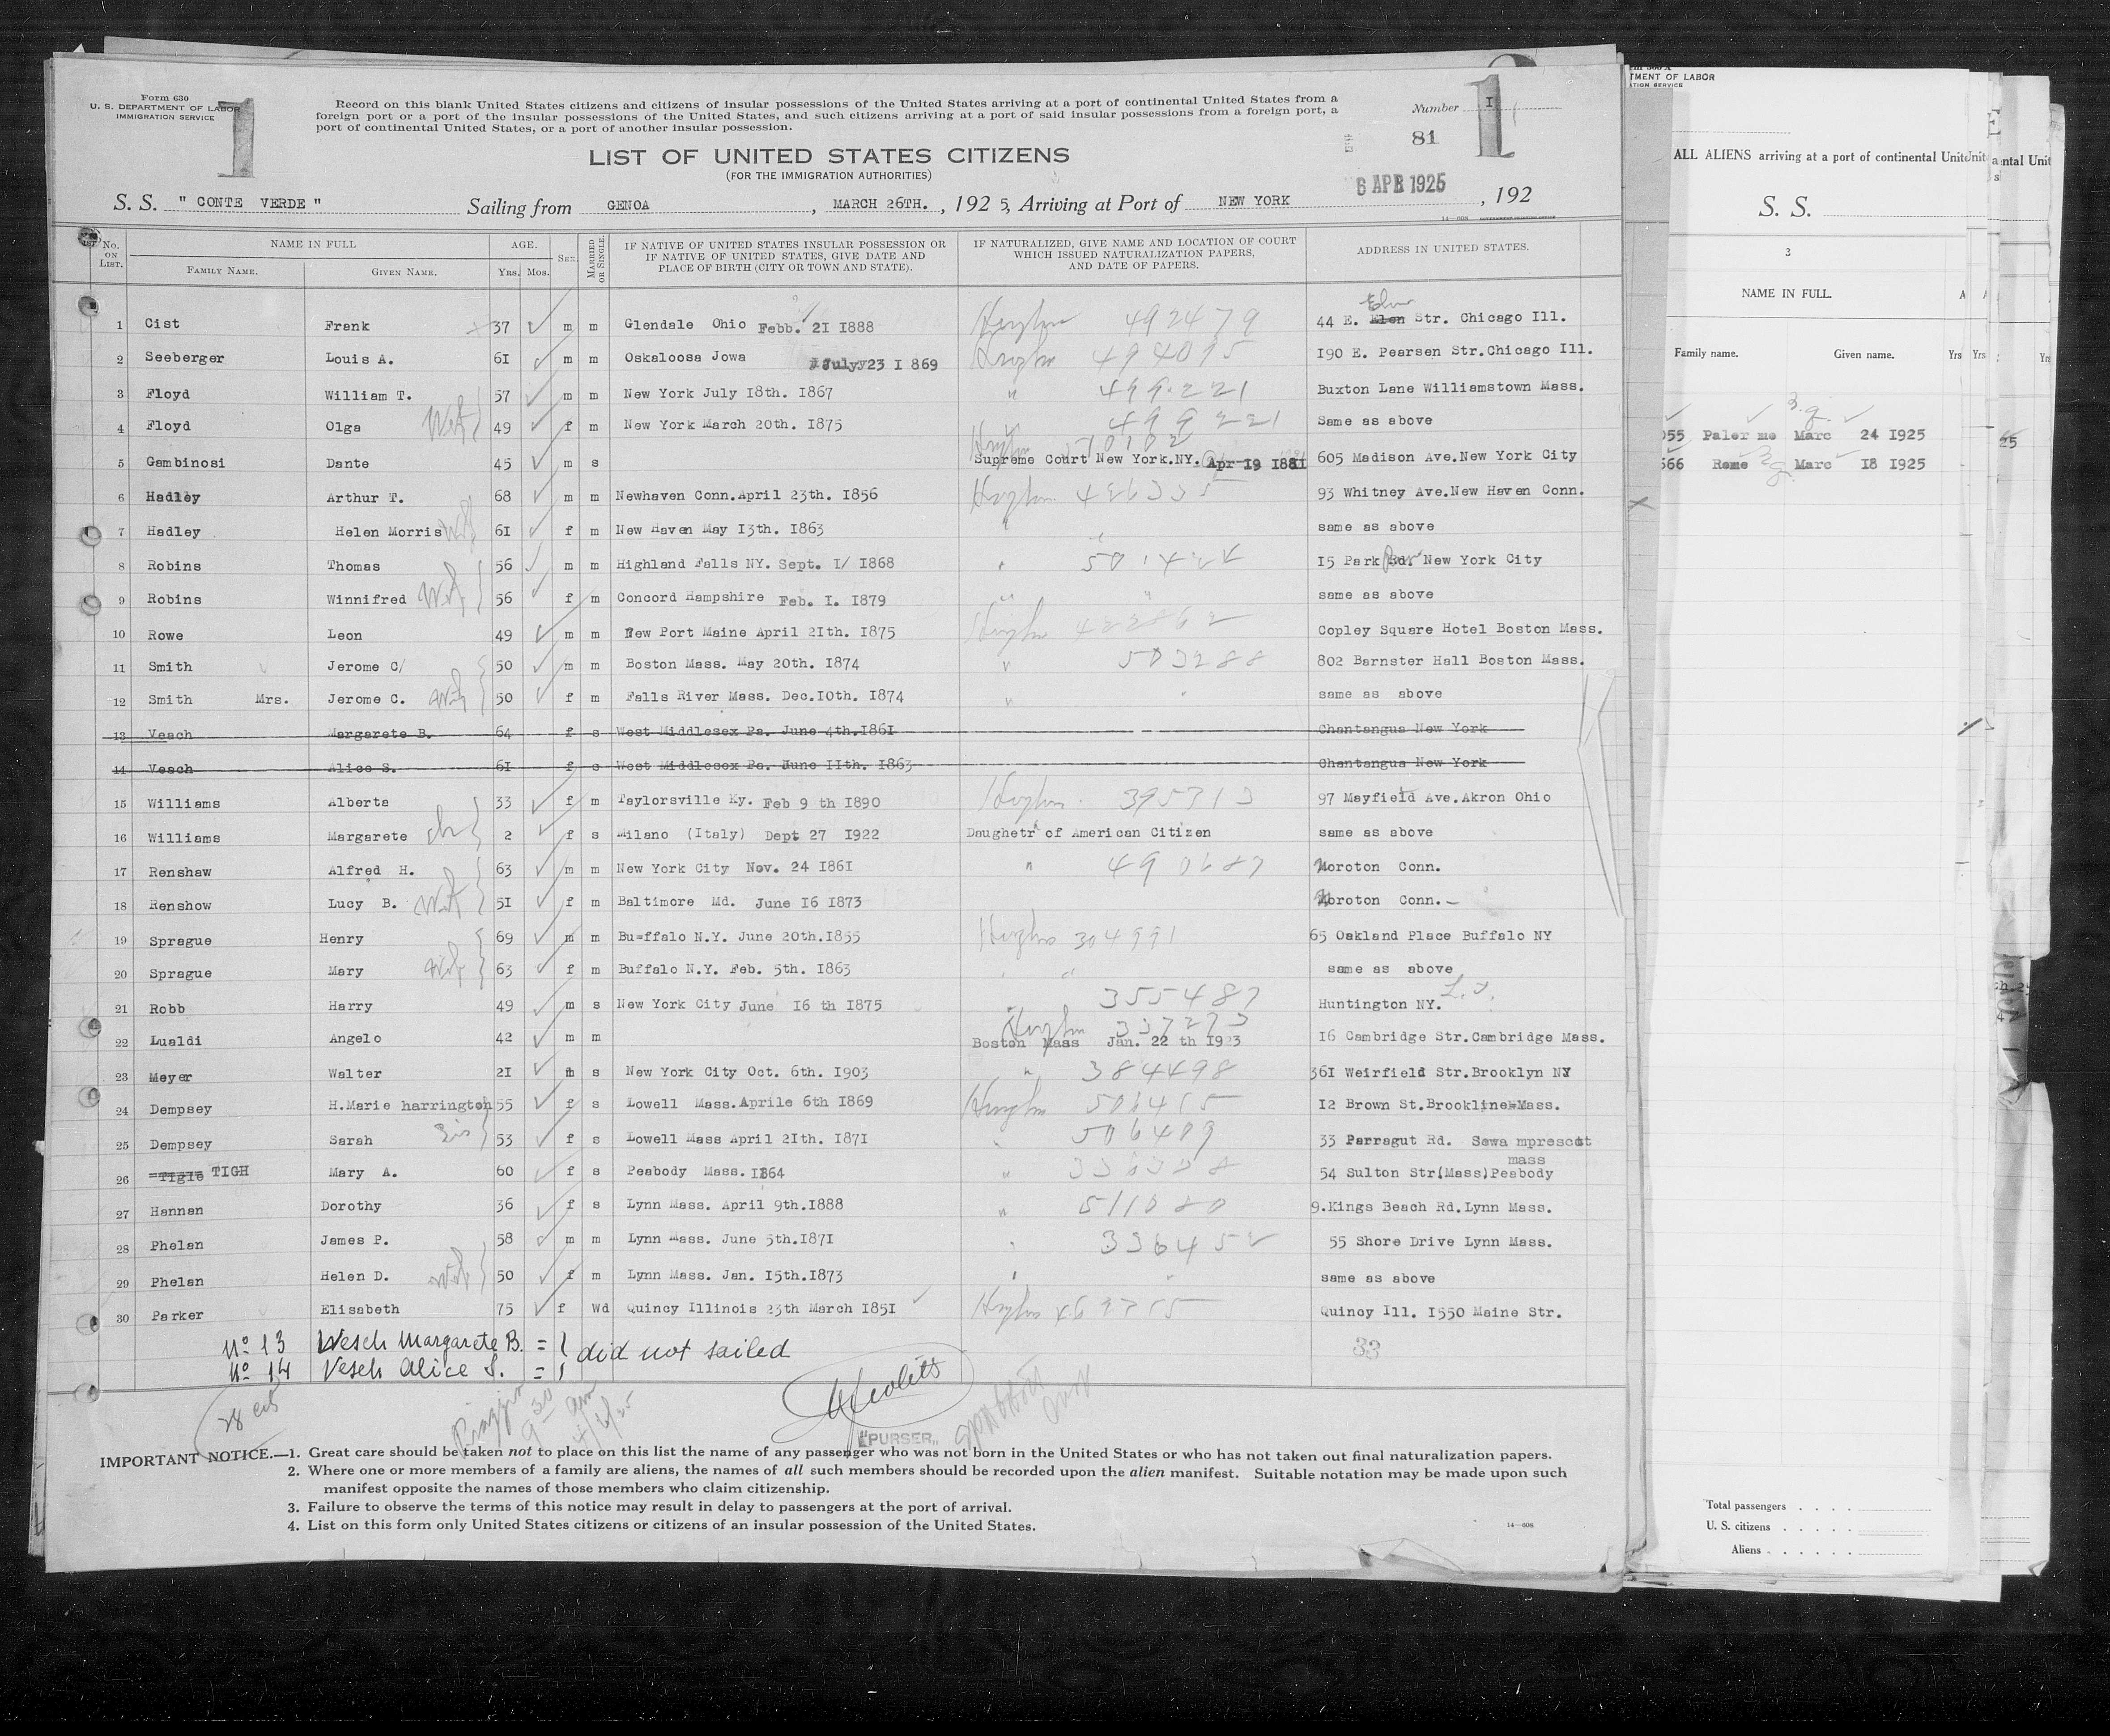 Form 630
U. S. DEPARTMENT OF LABOR
IMMIGRATION SERVICE
1
Record on this blank United States citizens and citizens of insular possessions of the United States arriving at a port of continental United States from a
foreign port or a port of the insular possessions of the United States, and such citizens arriving at a port of said insular possessions from a foreign port, a
port of continental United States, or a port of another insular possession.
Number I
1
81
LIST OF UNITED STATES CITIZENS
(FOR THE IMMIGRATION AUTHORITIES)
6 APR 1925
S. S. " CONTE VERDE " Sailing from GENOA, MARCH 26TH., 192 5, Arriving at Port of NEW YORK, 192
14-608 GOVERNMENT PRINTING OFFICE
No. ON LIST. NAME IN FULL AGE. SEX MARRIED OR SINGLE. IF NATIVE OF UNITED STATES INSULAR POSSESSION OR IF NATIVE OF UNITED STATES, GIVE DATE AND PLACE OF BIRTH (CITY OR TOWN AND STATE). IF NATURALIZED, GIVE NAME AND LOCATION OF COURT WHICH ISSUED NATURALIZATION PAPERS, AND DATE OF PAPERS. ADDRESS IN UNITED STATES.
FAMILY NAME. GIVEN NAME. YRS. MOS.
1 Cist Frank 37 m m Glendale Ohio Febb. 2I I888 492479 44 E. Elen Elm Str. Chicago Ill.
2 Seeberger Louis A. 6I m m Oskaloosa Jowa July 23 I 869 494095 I90 E. Pearsen Str.Chicago Ill.
3 Floyd William T. 57 m m New York July I8th. I867 " 499221 Buxton Lane Williamstown Mass.
4 Floyd Olga Wif 49 f m New York March 20th. I875 499221 Same as above
5 Gambinosi Dante 45 m s Supreme Court New York.NY. Apr 19 605 Madison Ave.New York City
6 Hadley Arthur T. 68 m m Newhaven Conn.April 23th. I856 426335 93 Whitney Ave.New Haven Conn.
7 Hadley Helen Morris Wif 6I f m New Haven May I3th. I863 " same as above
8 Robins Thomas 56 m m Highland Falls NY. Sept. I/ I868 " I5 Park Rd. New York City
9 Robins Winnifred Wif 56 f m Concord Hampshire Feb. I. I879 " " same as above
10 Rowe Leon 49 m m New Port Maine April 2Ith. I875 Copley Square Hotel Boston Mass.
11 Smith Jerome C/ 50 m m Boston Mass. May 20th. I874 " 503288 802 Barnster Hall Boston Mass.
12 Smith Mrs. Jerome C. Wif 50 f m Falls River Mass. Dec.I0th. I874 " " same as above
13 Veach Margarete B. 64 f s West Middlesex Pa. June 4th.I86I Chantangua New York
14 Veach Alice S. 6I f s West Middlesex Pa. June IIth. I863 Chantangua New York
15 Williams Alberta 33 f m Taylorsville Ky. Feb 9 th I890 395313 97 Mayfield Ave.Akron Ohio
16 Williams Margarete ch 2 f s Milano (Italy) Dept 27 I922 Daughetr of American Citizen same as above
17 Renshaw Alfred H. 63 m m New York City Nov. 24 I86I " 490687 Noroton Conn.
18 Renshow Lucy B. Wif 5I f m Baltimore Md. June I6 I873 Noroton Conn.
19 Sprague Henry 69 m m Bu=ffalo N.Y. June 20th.I855 304991 65 Oakland Place Buffalo NY
20 Sprague Mary Wif 63 f m Buffalo N.Y. Feb. 5th. I863 " " same as above
21 Robb Harry 49 m s New York City June I6 th I875 355487 Huntington NY. L.I.
22 Lualdi Angelo 42 m m 337273 Boston Mass Jan. 22 th I923 I6 Cambridge Str.Cambridge Mass.
23 Meyer Walter 2I m s New York City Oct. 6th. I903 " 384498 36I Weirfield Str.Brooklyn NY
24 Dempsey H.Marie harrington 55 f s Lowell Mass.Aprile 6th I869 506415 I2 Brown St.Brookline Mass.
25 Dempsey Sarah Sis 53 f s Lowell Mass April 2Ith. I87I " 506409 33 Parragut Rd. Sewa mprescot
mass
26 =Tigie TIGH Mary A. 60 f s Peabody Mass. I864 " 54 Sulton Str.(Mass)Peabody
27 Hannan Dorothy 36 f s Lynn Mass. April 9th.I888 " 511080 9.Kings Beach Rd.Lynn Mass.
28 Phelan James P. 58 m m Lynn Mass. June 5th.I87I " 336452 55 Shore Drive Lynn Mass.
29 Phelan Helen D. Wif 50 f m Lynn Mass. Jan. I5th.I873 " " same as above
30 Parker Elisabeth 75 f Wd Quincy Illinois 23th March I85I Quincy Ill. I550 Maine Str.
No 13 Vesch Margarete B. = 1 did not sailed
No 14 Vesch Alice S. = 1
33
28
9 30 am
4/6/25
"PURSER"
IMPORTANT NOTICE.—1. Great care should be taken not to place on this list the name of any passenger who was not born in the United States or who has not taken out final naturalization papers.
2. Where one or more members of a family are aliens, the names of all such members should be recorded upon the alien manifest. Suitable notation may be made upon such
manifest opposite the names of those members who claim citizenship.
3. Failure to observe the terms of this notice may result in delay to passengers at the port of arrival.
4. List on this form only United States citizens or citizens of an insular possession of the United States.
14-608
TMENT OF LABOR
ALL ALIENS arriving at a port of continental Unit
S. S.
3
NAME IN FULL.
Family name. Given name. Yrs
055 Palermo Marc 24 1925
566 Rome Marc 18 1925
25
Total passengers . . . .
U. S. citizens . . . . .
Aliens . . . . . .
ntal Unit